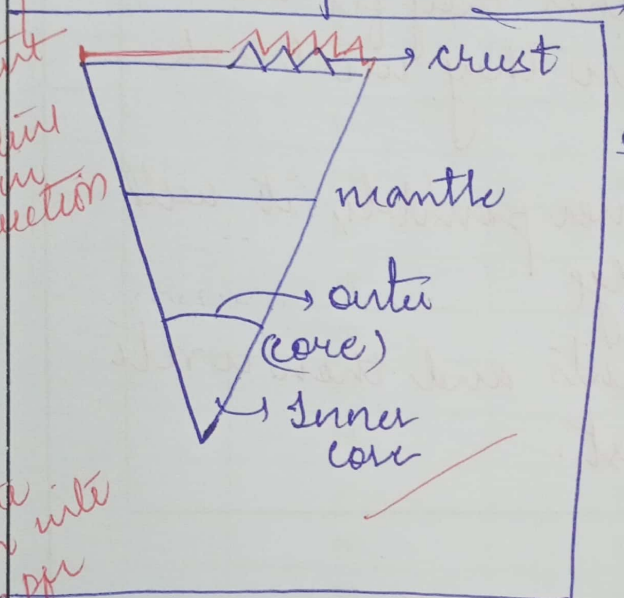 crust
mantle
outer
(core)
Inner
core